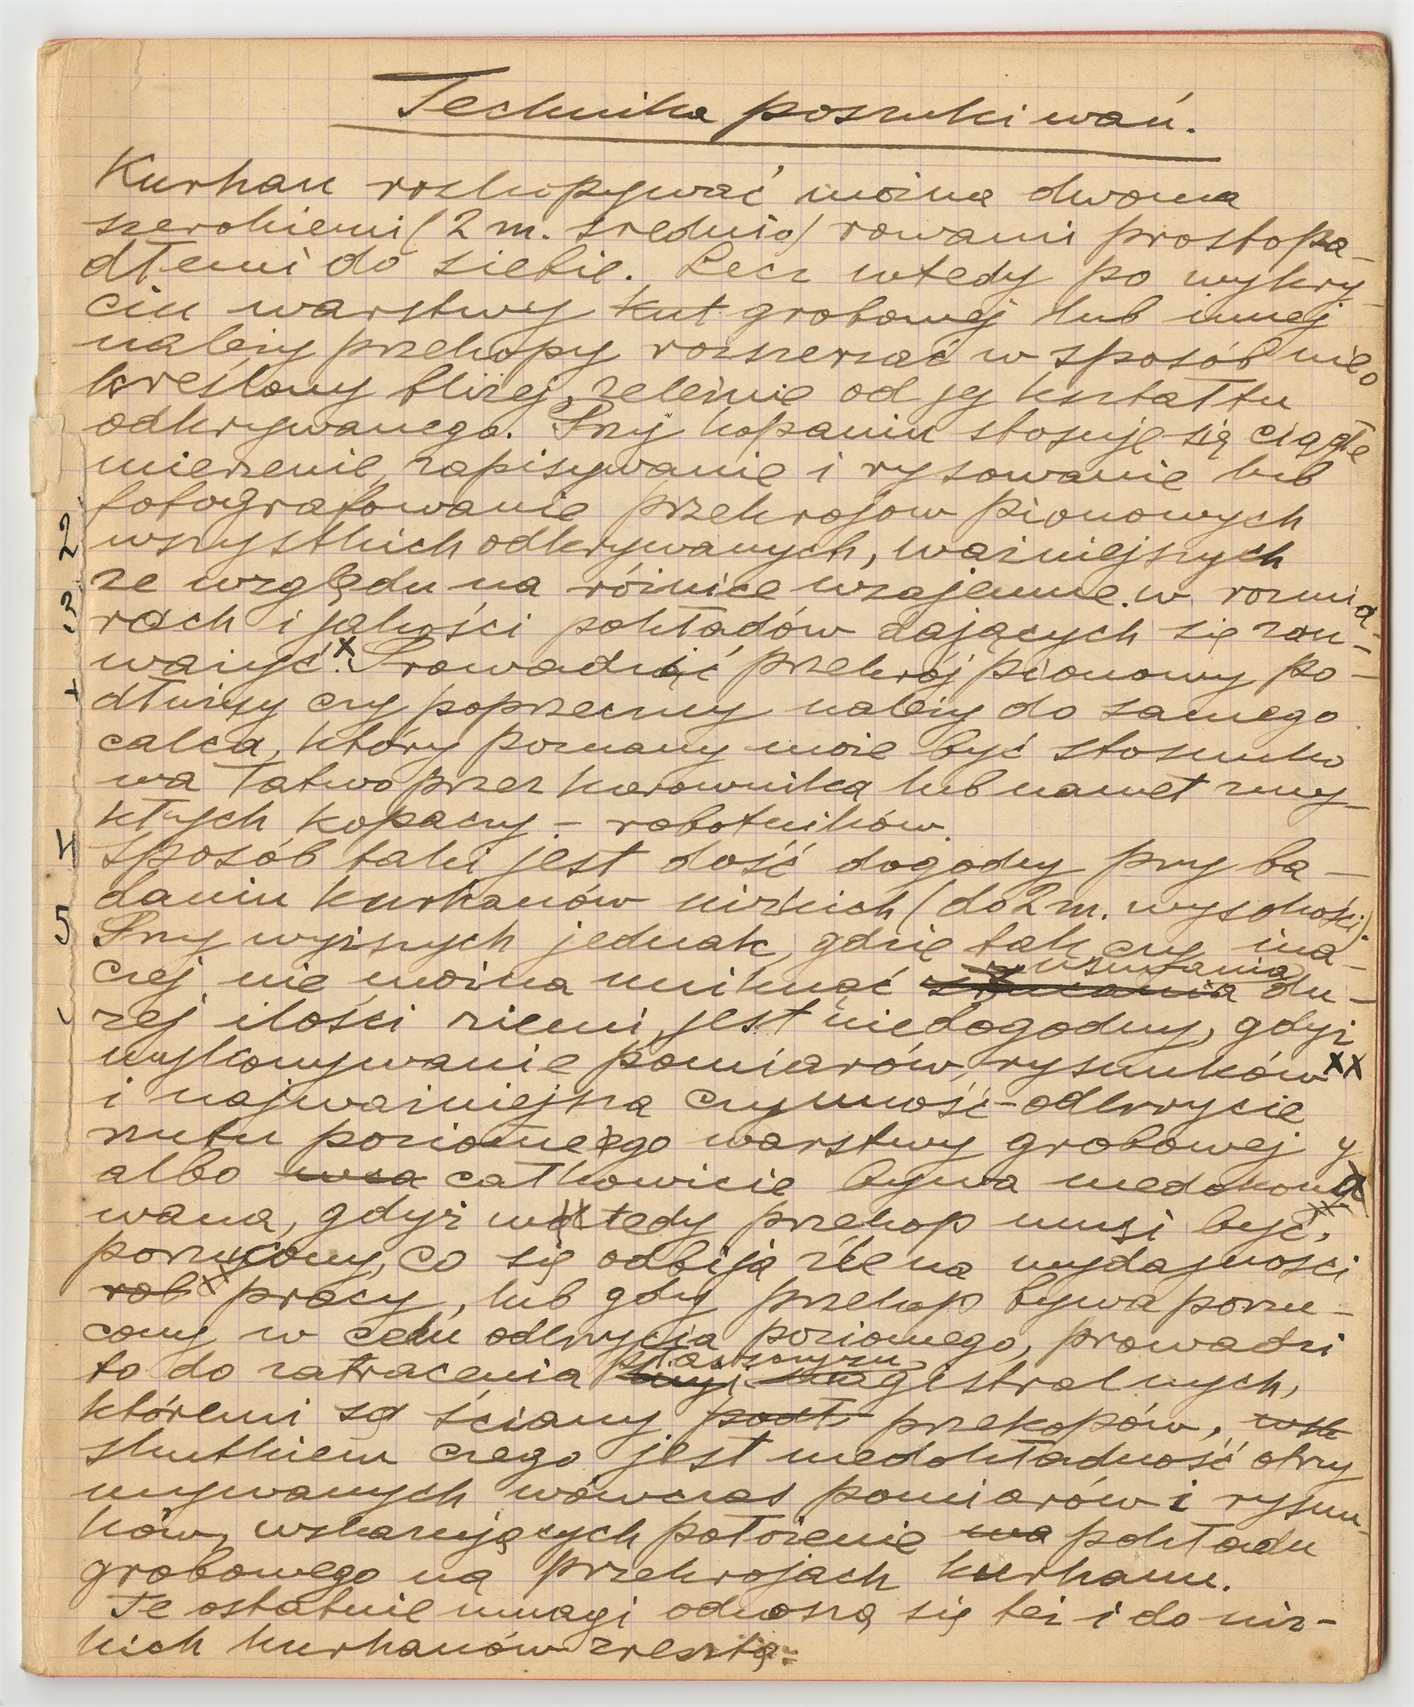 Technika poszukiwań.
Kurhan rozkopywać można dwoma
szerokiemi (2 m. średnio) rowami prostopa-
dłemi do siebie. Lecz wtedy po wykry-
ciu warstwy kut grobowej lub innej
należy przekopy rozszerzać w sposób nieo
kreślony bliżej, zależnie od jej kształtu
odkrywanego. Przy kopaniu stosuje się ciągłe
mierzenie, zapisywanie i rysowanie lub
fotografowanie przekrojow pionowych
2 wszystkich odkrywanych, ważniejszych
ze względu na różnice wzajemne w rozmia-
3 rach i jakości pokładów dających się zau-
ważyć x. Prowadzić przekrój pionowy po-
dłużny czy poprzeczny należy do samego
calca, który poznany może być stosunko
wa łatwo przez kierownika lub nawet zwy-
kłych kopaczy – robotników.
4 Sposób taki jest dość dogodny przy ba-
daniu kurhanów nizkich (do 2 m. wysokości).
5 Przy wyższych jednak, gdzie tak czy ina-
usuwania
czej nie można uniknąć du-
żej ilości ziemi, jest niedogodny, gdyż
wykonywanie pomiarów, rysunków xx
i najważniejsza czynność – odkrycie
rzutu poziomego warstwy grobowej y
albo wca całkowicie bywa niedokony
wana, gdyż wtedy przekop musi być
porzucony, co się odbija źle na wydajności
rob pracy, lub gdy przekop bywa porzu-
cony w celu odkrycia poziomego, prowadzi
płaszczyzn
to do zatracenia magistralnych,
któremi są ściany podł przekopów, wsk
skutkiem czego jest niedokładność otrzy
mywanych wówczas pomiarów i rysun-
ków, wskazujących położenie wa pokładu
grobowego na przekrojach kurhanu.
Te ostatnie uwagi odnoszą się też i do niz-
kich kurhanów zresztą.